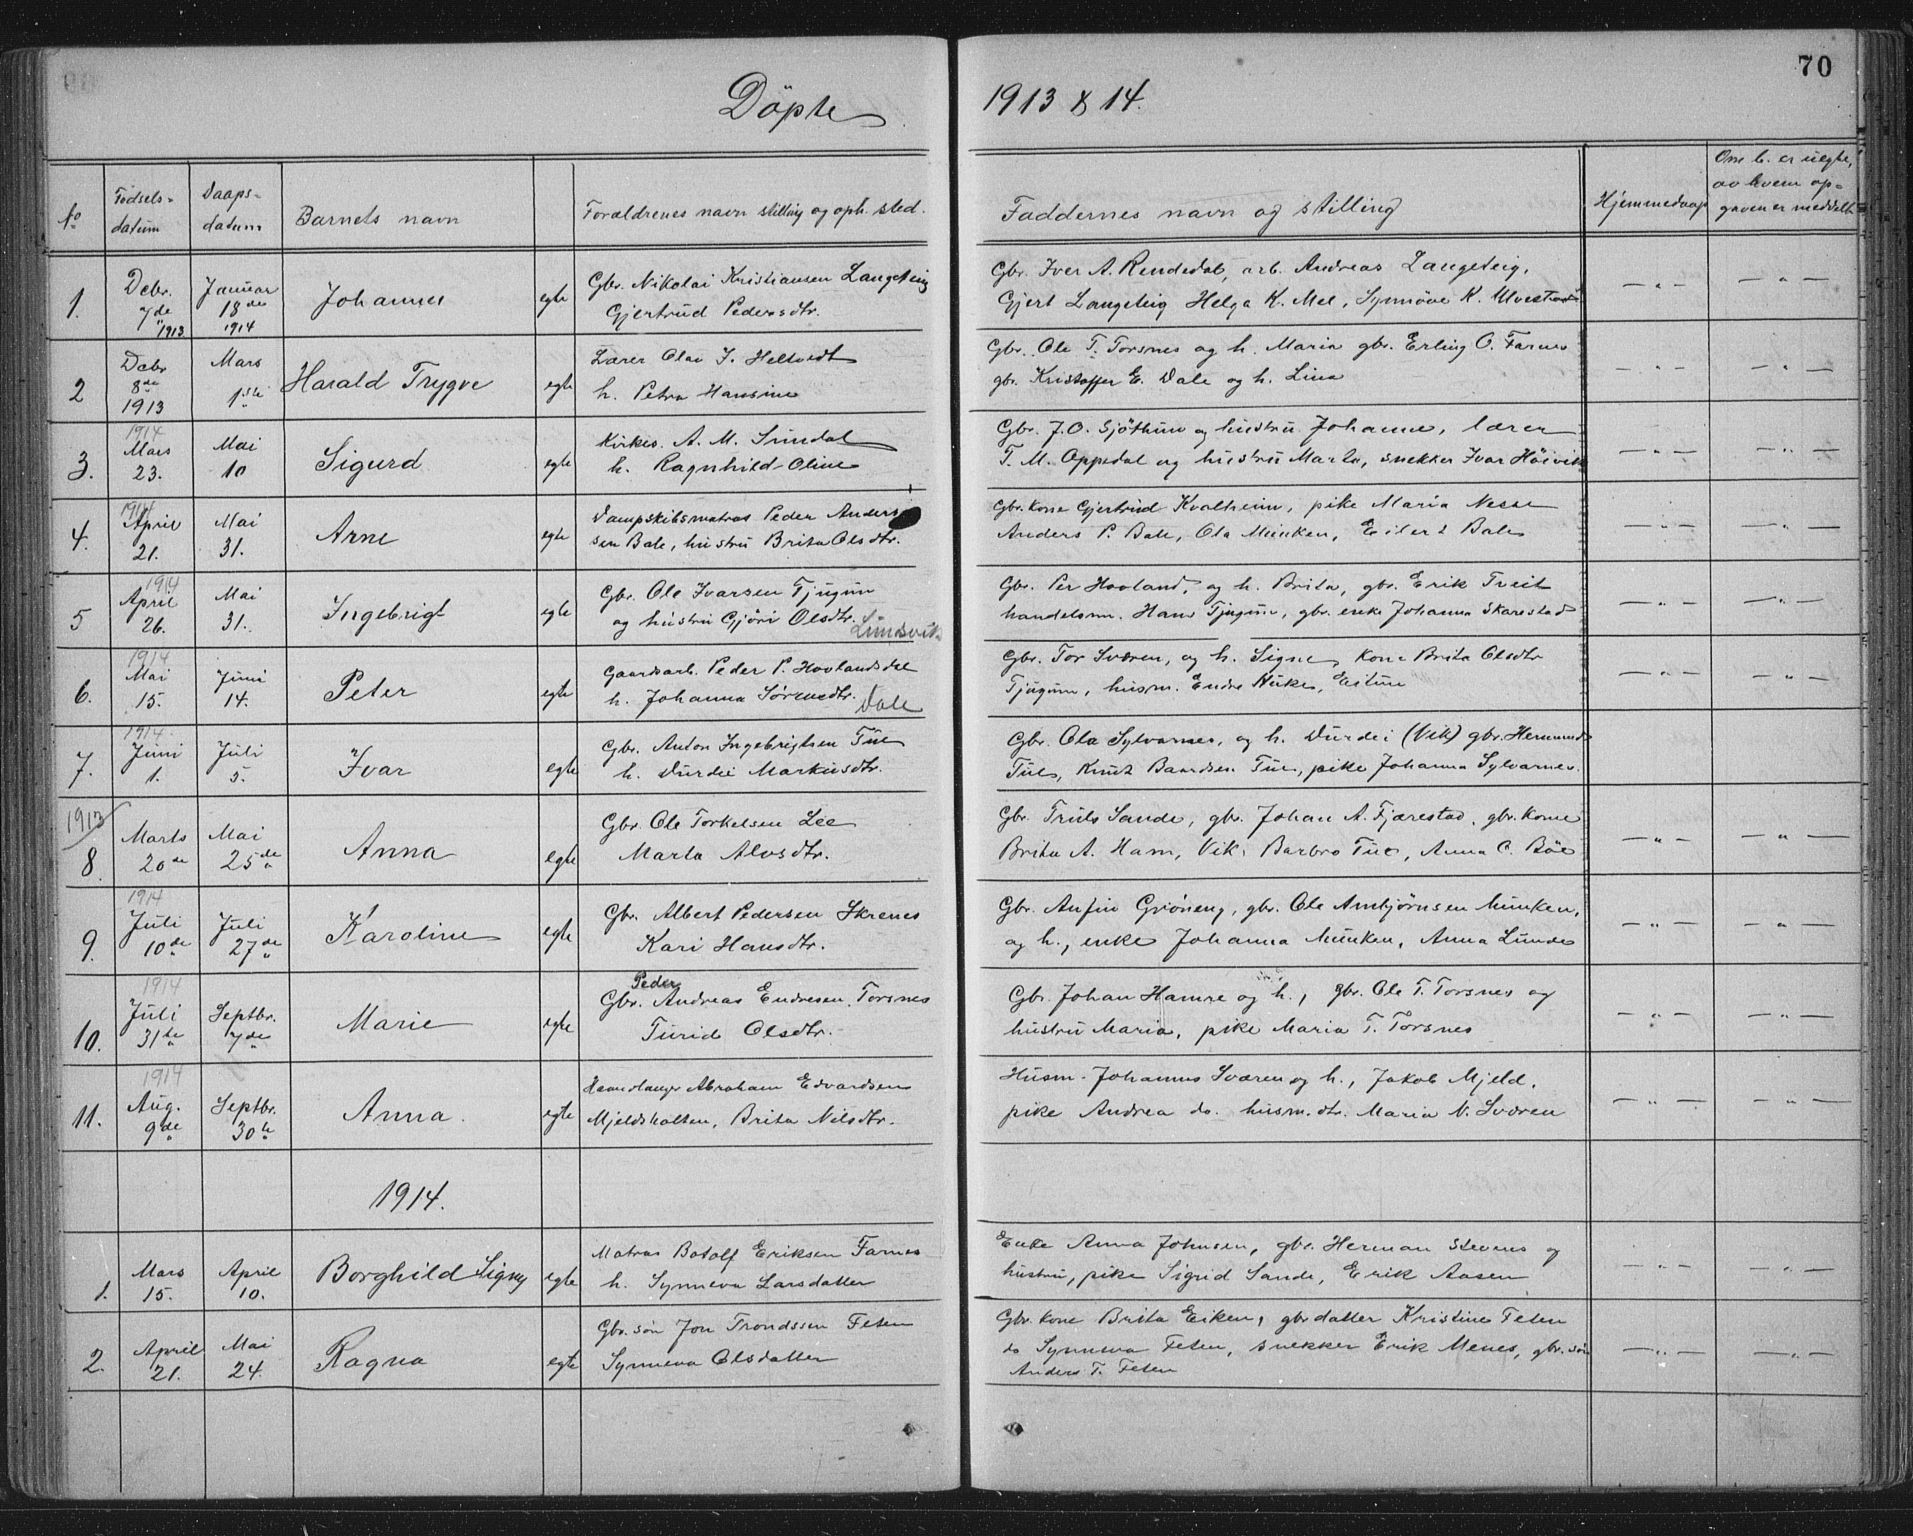 70
Döpte 1913 & 14.
No Fødsels-datum Daaps-datum Barnets navn Forældrenes navn stilling og oph. sted. Faddernes navn og stilling Hjemmedaab Om b. er uegte, av hvem op-gaven er meddelt
1. Debr. 7de 1913 Januar 18de 1914 Johannes egte Gbr. Nikolai Kristiansen Langeteig Gjertrud Pedersdtr.
Gbr. Iver A. Rendedal, arb. Andreas Langeteig,
Gjert Langeteig Helga K. Mel, Synnöve K.
2 Debr 8de 1913 Mars 1ste Harald Trygve egte Lærer Olav J. Heltvedt h. Petra Hansine
Gbr. Ole T. Torsnes og h. Maria gbr. Erling O. Farnes
gbr. Kristoffer E. Dale og h. Lina
3. 1914 Mars 23. Mai 10 Sigurd egte Kirkes. A. M. Sundal h. Ragnhild Oline
Gbr. J. O. Sjöthun og hustru Johanne, lærer
T. M. Oppedal og hustru Marta, snekker Ivar Höivik
4. 1914 April 21. Mai 31. Arne egte Dampskibsmatros Peder Andersen Bale, hustru Brita Olsdtr.
Gbr. kone Gjertrud Kvalheim, pike Maria Nesse
Anders P. Bale, Ola Munken, Eilert Bale
5 1914 April 26. Mai 31. Ingebrigt egte Gbr. Ole Ivarsen Tjugum og hustru Gjöri Olsdtr. Lunsvik
Gbr. Per Hovland, og h. Brita, gbr. Erik Tveit
handelsm. Hans Tjugum, gbr. enke Johanna Skarestad
6. 1914 Mai 15. Juni 14. Peter egte Gaardsarb. Peder P. Hovlandsdal h. Johanna Sörensdtr. Dale
Gbr. Tor Sværen, og h. Signe, Kone Brita Olsdtr
Tjugum, husm. Endre Huke, Eitun
7. 1914 Juni 1. Juli 5. Ivar egte Gbr. Anton Ingebrigtsen Tue h. Durdei Markusdtr.
Gbr. Ola Sylvarnes, og h. Durdei (Vik) gbr. Hermund
Tue, Knut Baardsen Tue, pike Johanna Sylvarnes
1913
8. Marts 20de Mai 25de Anna egte Gbr. Ole Torkelsen Lee Marta Alvsdtr.
Gbr. Truls Sande, gbr. Johan A. Fjærestad, gbr. kone
Brita A. Ham, Vik, Barbro Tue, Anna C. Böe
9. 1914 Juli 10de Juli 27de Karoline egte Gbr. Albert Pedersen Skrenes Kari Hansdtr.
Gbr. Anfin Gröneng, gbr. Ole Ambjörnsen Munken,
og h., enke Johanna Munken, Anna Lunde
10. 1914 Juli 31te Septbr. 7de Marie egte Peder
Gbr. Andreas Endresen Torsnes Turid Olsdtr.
Gbr. Johan Hamre og h., gbr. Ole T. Torsnes og
hustru Maria, pike Maria T. Torsnes
11. 1914 Aug. 9de Septbr. 30te Anna. egte Haandlanger Abraham Edvardsen Mjeldsholten, Brita Nilsdtr.
Husm. Johannes Sværen og h., Jakob Mjeld,
pike Andrea do. husm. dtr. Maria N. Sværen
1914.
1. Mars 15. April 10. Borghild Signy egte Matros Botolf Eriksen Farnes h. Synneva Larsdatter
Enke Anna Johnsen, gbr. Herman Stevens og
hustru, pike Sigrid Sande, Erik Aasen
2. April 21. Mai 24. Ragna egte Gbr. sön Jon Trondssen Feten Synneva Olsdatter
Gbr. kone Brita Eiken, gbr datter Kristine Feten
do Synneva Feten, snekker Erik Menes, gbr. sön
Anders T. Feten